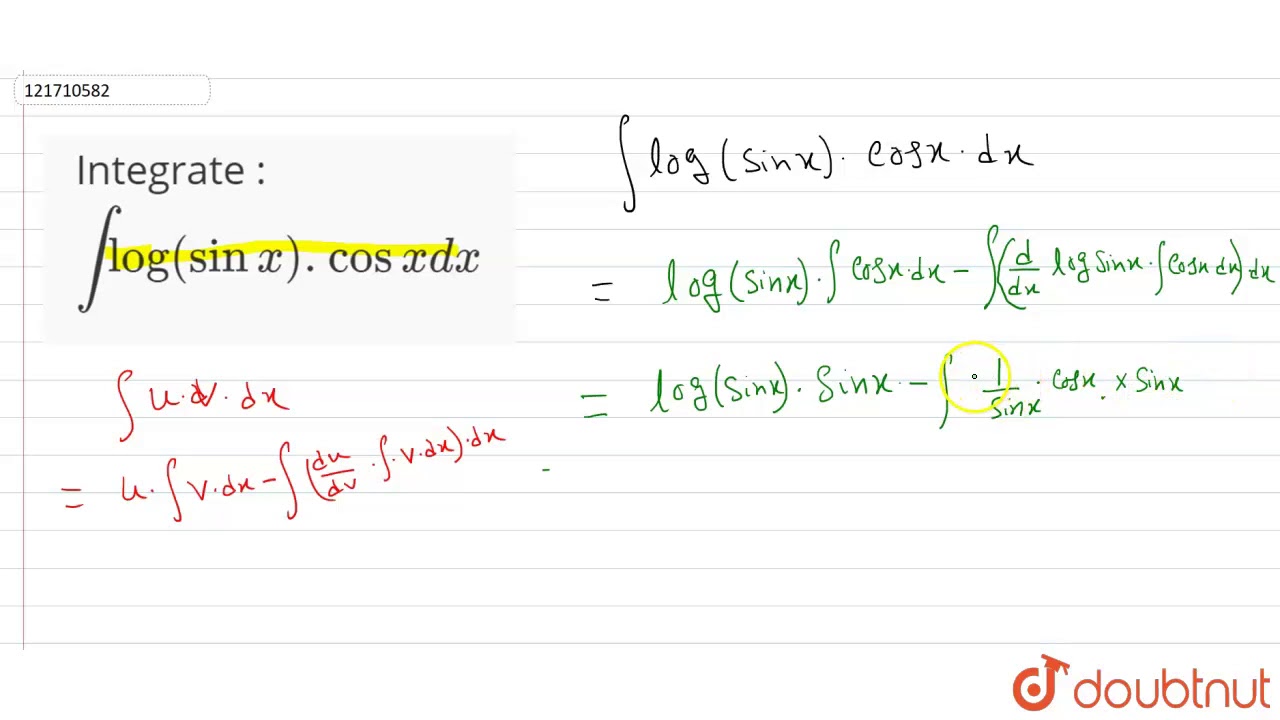 121710582
Integrate :
∫log(sin x). cos xdx
∫ log (sinx). cosx. dx
= log(sinx). ∫ cosx.dx - ∫(d/dx logsinx. ∫cosx dx) dx
= log(sinx). sinx. - ∫ . 1/sinx . cosx . x sinx
∫ u.dv.dx
= u. ∫ v.dx - ∫(du/dv . ∫.v.dx).dx
-
doubtnut